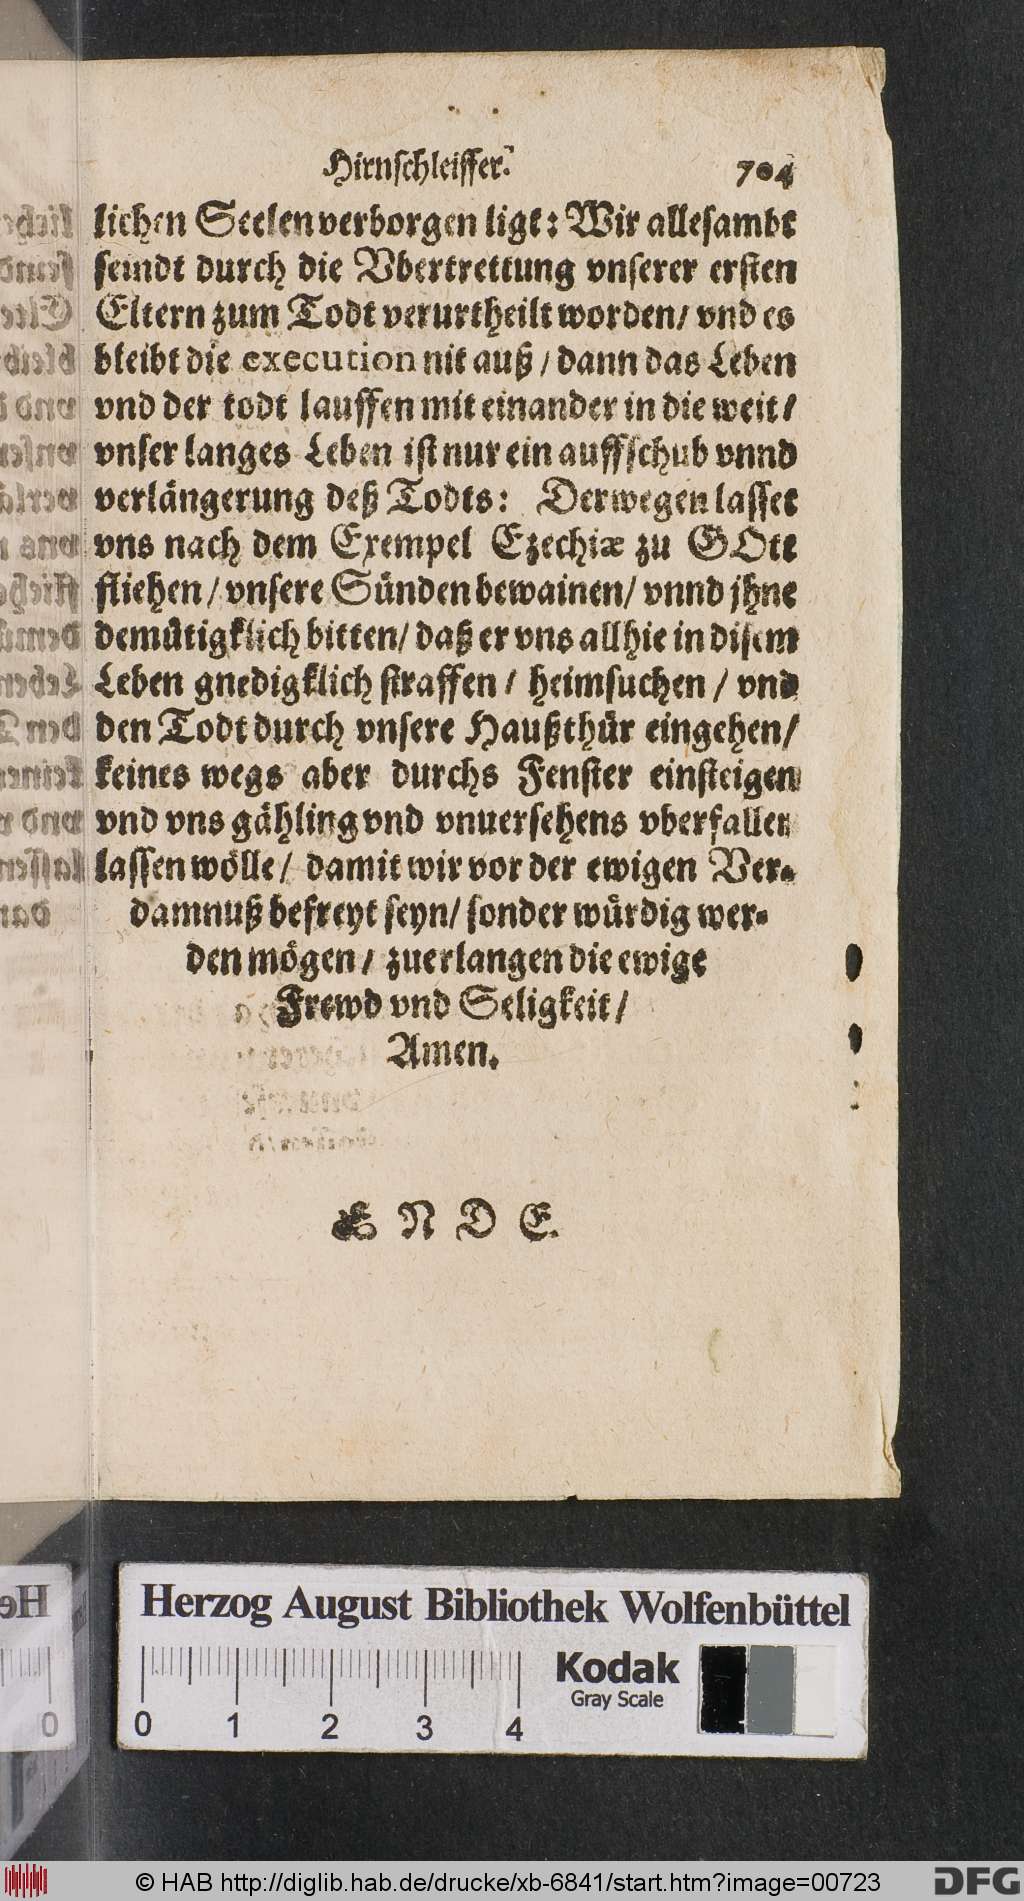 Hirnschleiffer. 704
lichen Seelen verborgen ligt: Wir allesambt
seindt durch die Vbertrettung vnserer ersten
Eltern zum Todt verurtheilt worden/ vnd es
bleibt die execution nit auß/ dann das Leben
vnd der todt lauffen mit einander in die weit/
vnser langes Leben ist nur ein auffschub vnnd
verlängerung deß Todts: Derwegen lasset
vns nach dem Exempel Ezechiæ zu GOtt
fliehen/ vnsere Sünden bewainen/ vnnd jhne
demütigklich bitten/ daß er vns allhie in disem
Leben gnedigklich straffen/ heimsuchen/ vnd
den Todt durch vnsere Haußthür eingehen/
keines wegs aber durchs Fenster einsteigen
vnd vns gähling vnd vnuersehens vberfallen
lassen wölle/ damit wir vor der ewigen Ver-
damnuß befreyt seyn/ sonder würdig wer-
den mögen/ zuerlangen die ewige
Frewd vnd Seligkeit/
Amen.
E N D E.
Herzog August Bibliothek Wolfenbüttel
Kodak
Gray Scale
0 1 2 3 4
© HAB http://diglib.hab.de/drucke/xb-6841/start.htm?image=00723
DFG